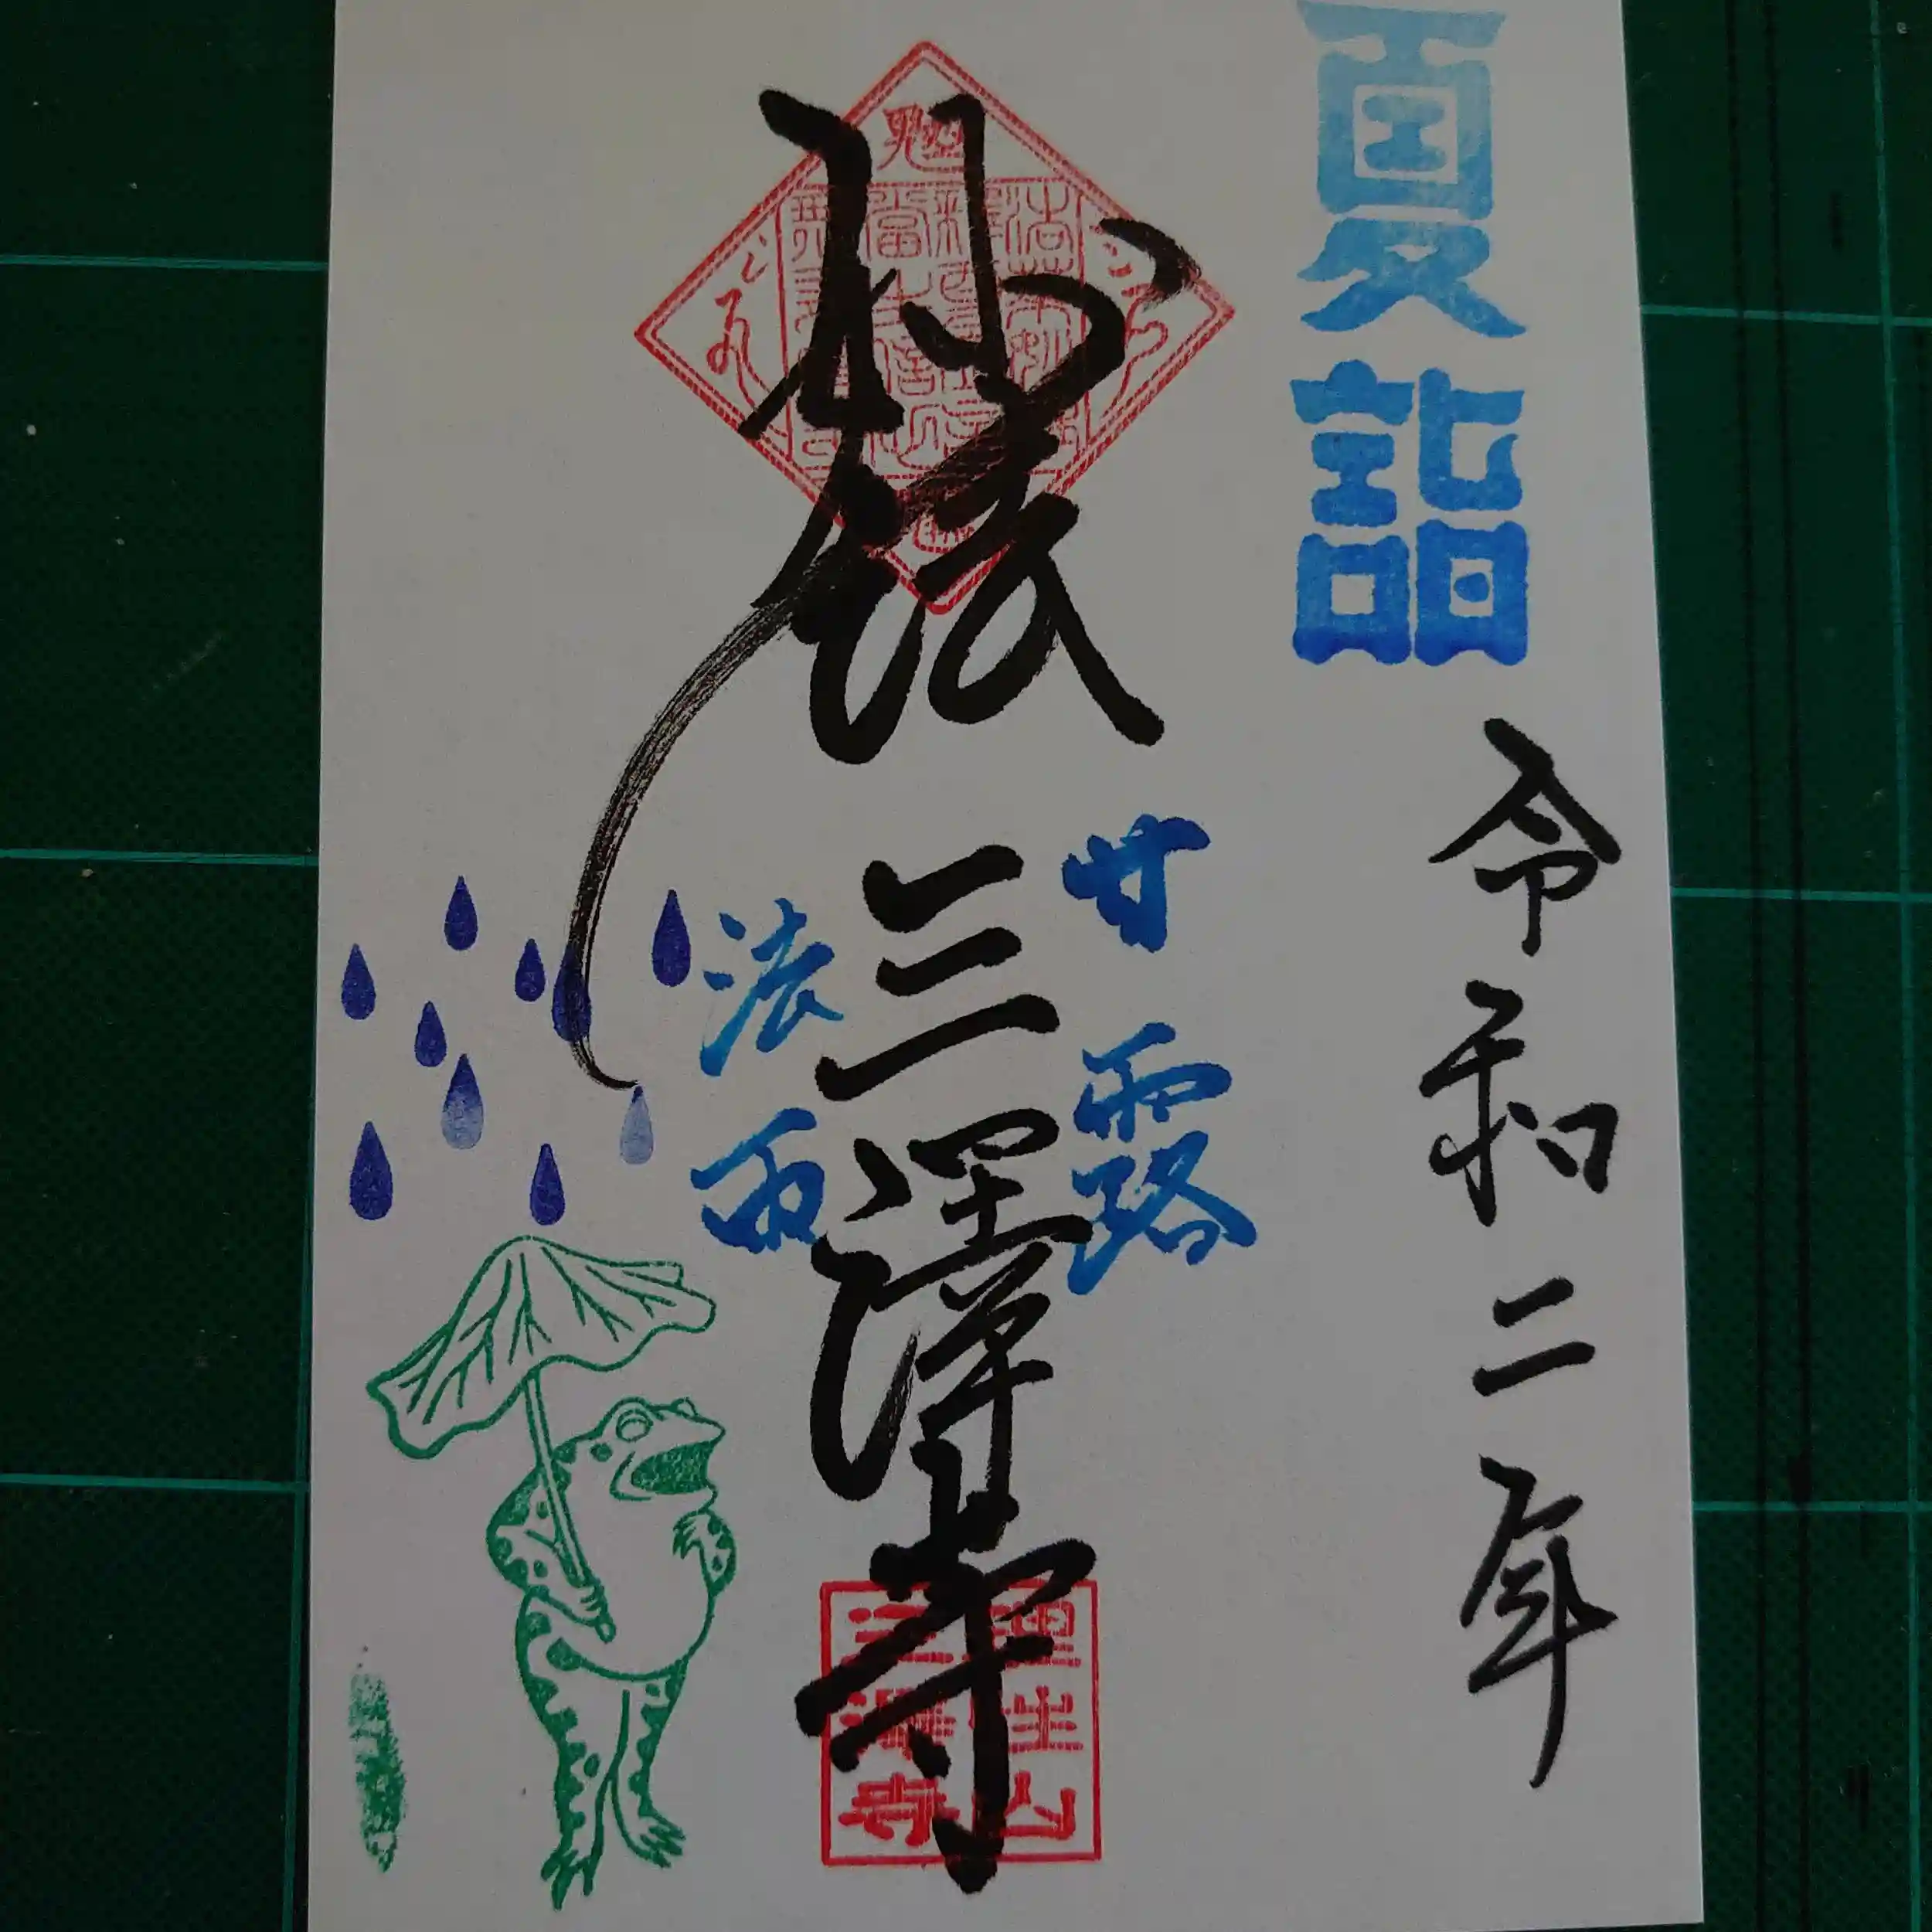 夏詣
令和二年
甘露
法雨
妙法
三澤寺
理性山
三澤寺